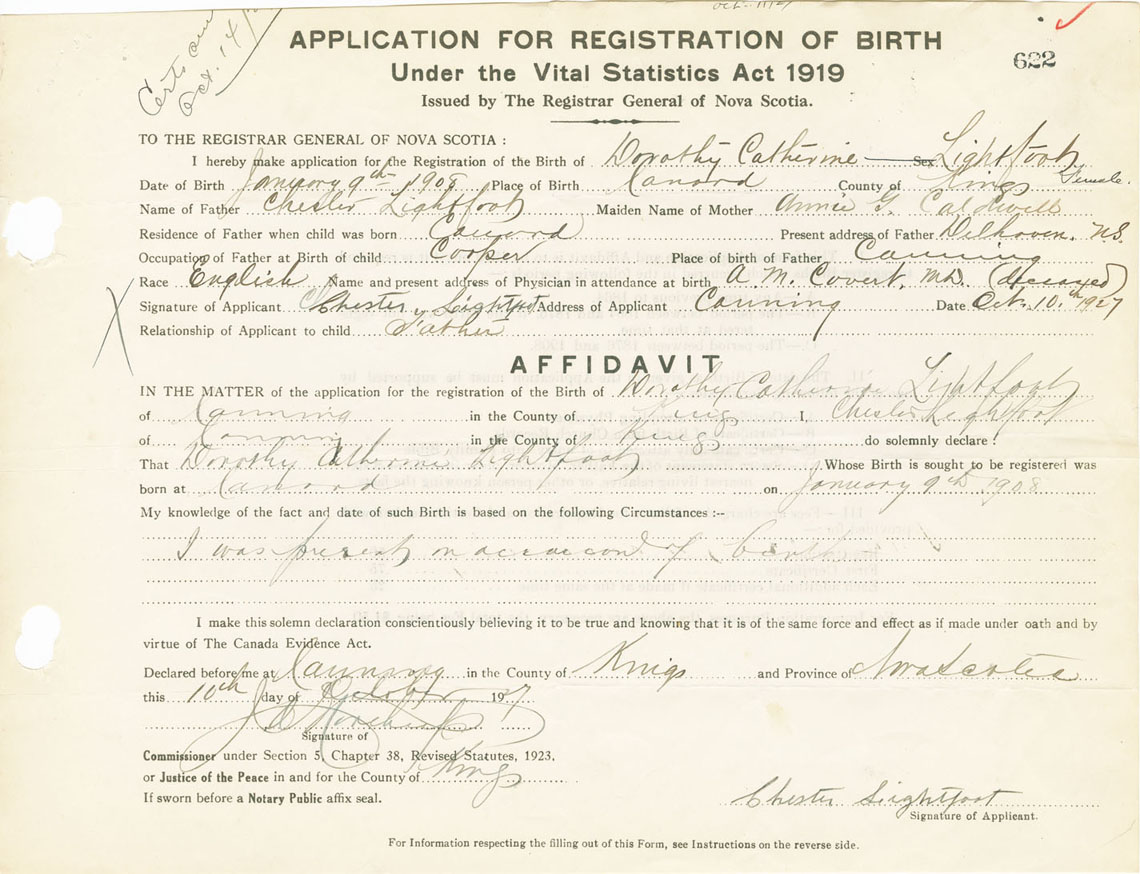 Oct. 14
APPLICATION FOR REGISTRATION OF BIRTH
622
Under the Vital Statistics Act 1919
Issued by The Registrar General of Nova Scotia.
TO THE REGISTRAR GENERAL OF NOVA SCOTIA :
I hereby make application for the Registration of the Birth of Dorothy Catherine Sex Lightfoot
Female.
Date of Birth January 9th 1908 Place of Birth Canard County of Kings
Name of Father Chester Lightfoot Maiden Name of Mother Annie G. Caldwell
Residence of Father when child was born Canard Present address of Father Delhaven. N.S.
Occupation of Father at Birth of child Cooper Place of birth of Father Canning
Race English Name and present address of Physician in attendance at birth A. M. Covert. MD. (deceased)
Signature of Applicant Chester Lightfoot Address of Applicant Canning Date Oct. 10th 1927
Relationship of Applicant to child Father
AFFIDAVIT
IN THE MATTER of the application for the registration of the Birth of Dorothy Catherine Lightfoot
of Canning in the County of Kings I, Chester Lightfoot
of Canning in the County of Kings do solemnly declare :
That Dorothy Catherine Lightfoot Whose Birth is sought to be registered was
born at Canard on January 9th 1908
My knowledge of the fact and date of such Birth is based on the following Circumstances :--
I was present of birth
I make this solemn declaration conscientiously believing it to be true and knowing that it is of the same force and effect as if made under oath and by
virtue of The Canada Evidence Act.
Declared before me at Canning in the County of Kings and Province of Nova Scotia
this 10th day of October 1927
Signature of
Commissioner under Section 5, Chapter 38, Revised Statutes, 1923.
or Justice of the Peace in and for the County of Kings
If sworn before a Notary Public affix seal.
Chester Lightfoot
Signature of Applicant.
For Information respecting the filling out of this Form, see Instructions on the reverse side.